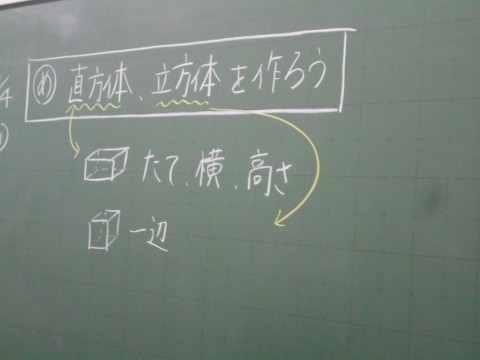 め 直方体、立方体を作ろう
たて、横、高さ
一辺